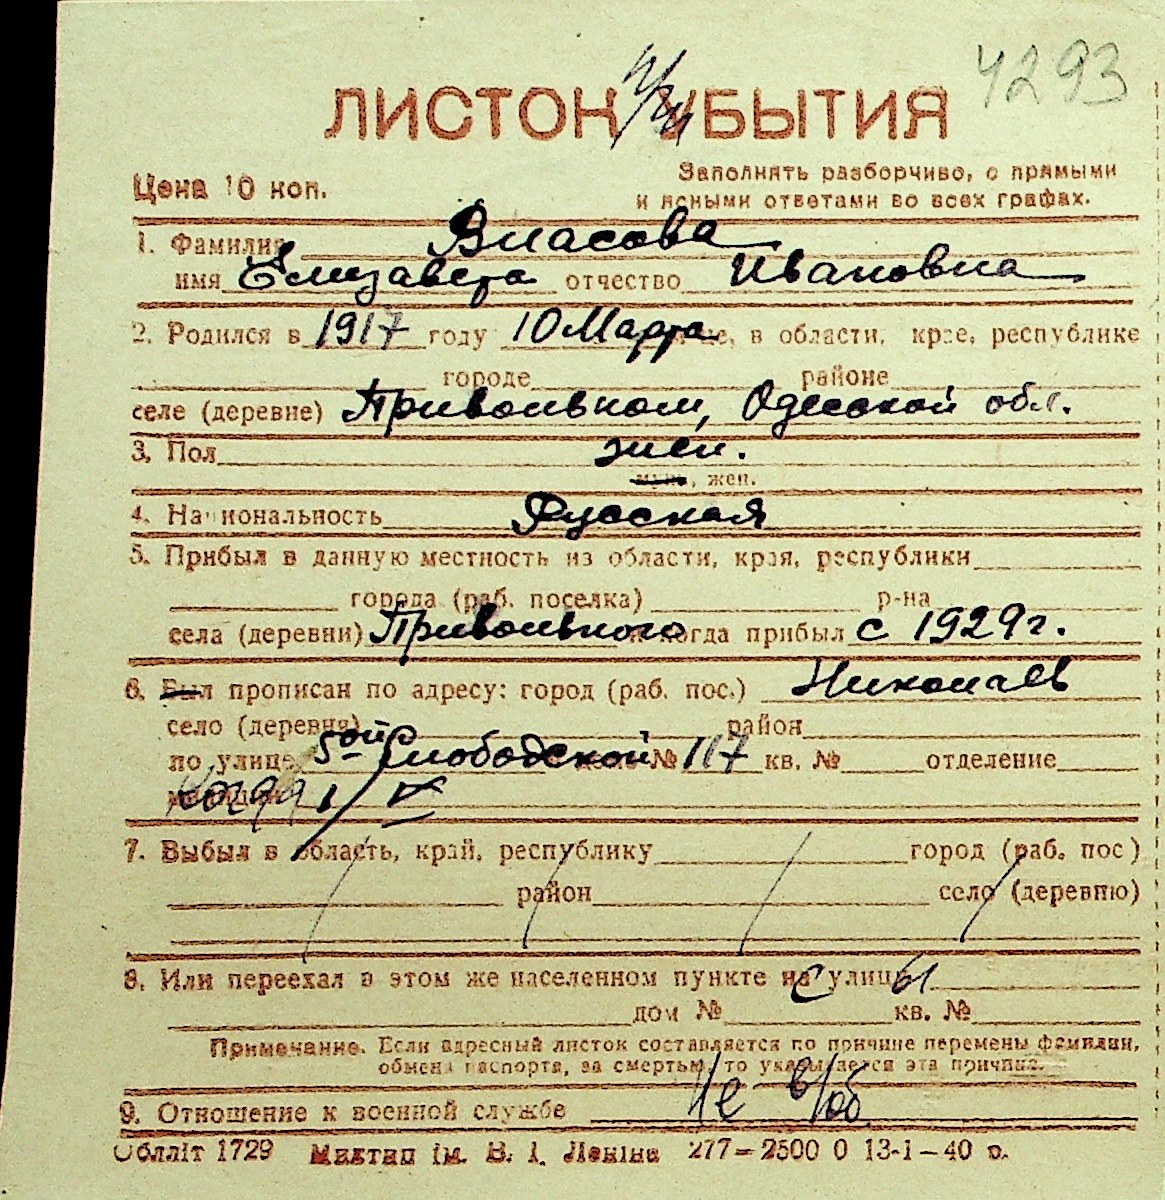 4293
ЛИСТОК УБЫТИЯ
Цена 10 коп.
Заполнять разборчиво, с прямыми
и ясными ответами во всех графах.
1. Фамилия Власова
имя Елизавета отчество Ивановна
2. Родился в 1917 году 10 Марта, в области, крае, республике
городе районе
селе (деревне) Привольном, Одесской обл.
3. Пол жен.
муж., жен.
4. Национальность Русская
5. Прибыл в данную местность из области, края, республики
города (раб. поселка) р-на
села (деревни) Привольного когда прибыл с 1929 г.
6. Был прописан по адресу: город (раб. пос.) Николаев
село (деревня) район
по улице 5ой Слободской дом № 117 кв. № отделение
когда
7. Выбыл в область, край, республику город (раб. пос)
район село (деревню)
8. Или переехал в этом же населенном пункте на с улицы
дом № кв. №
Примечание. Если адресный листок составляется по причине перемены фамилии,
обмена паспорта, за смертью, то указывается эта причина.
9. Отношение к военной службе Не в/об
Обллiт 1729 Миктип iм. В. I. Ленiна 277—2500 0 13-1-40 р.